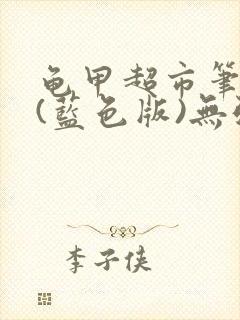 龟甲超市筆
(藍色版)無
李子侠